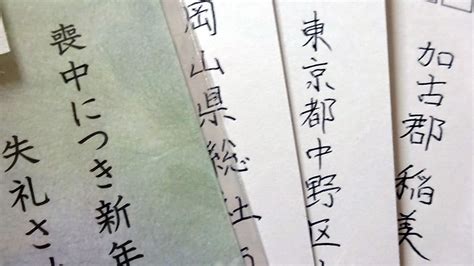 加古郡 稲美
東京都中野区
岡山県総社
喪中につき新年
失礼さ